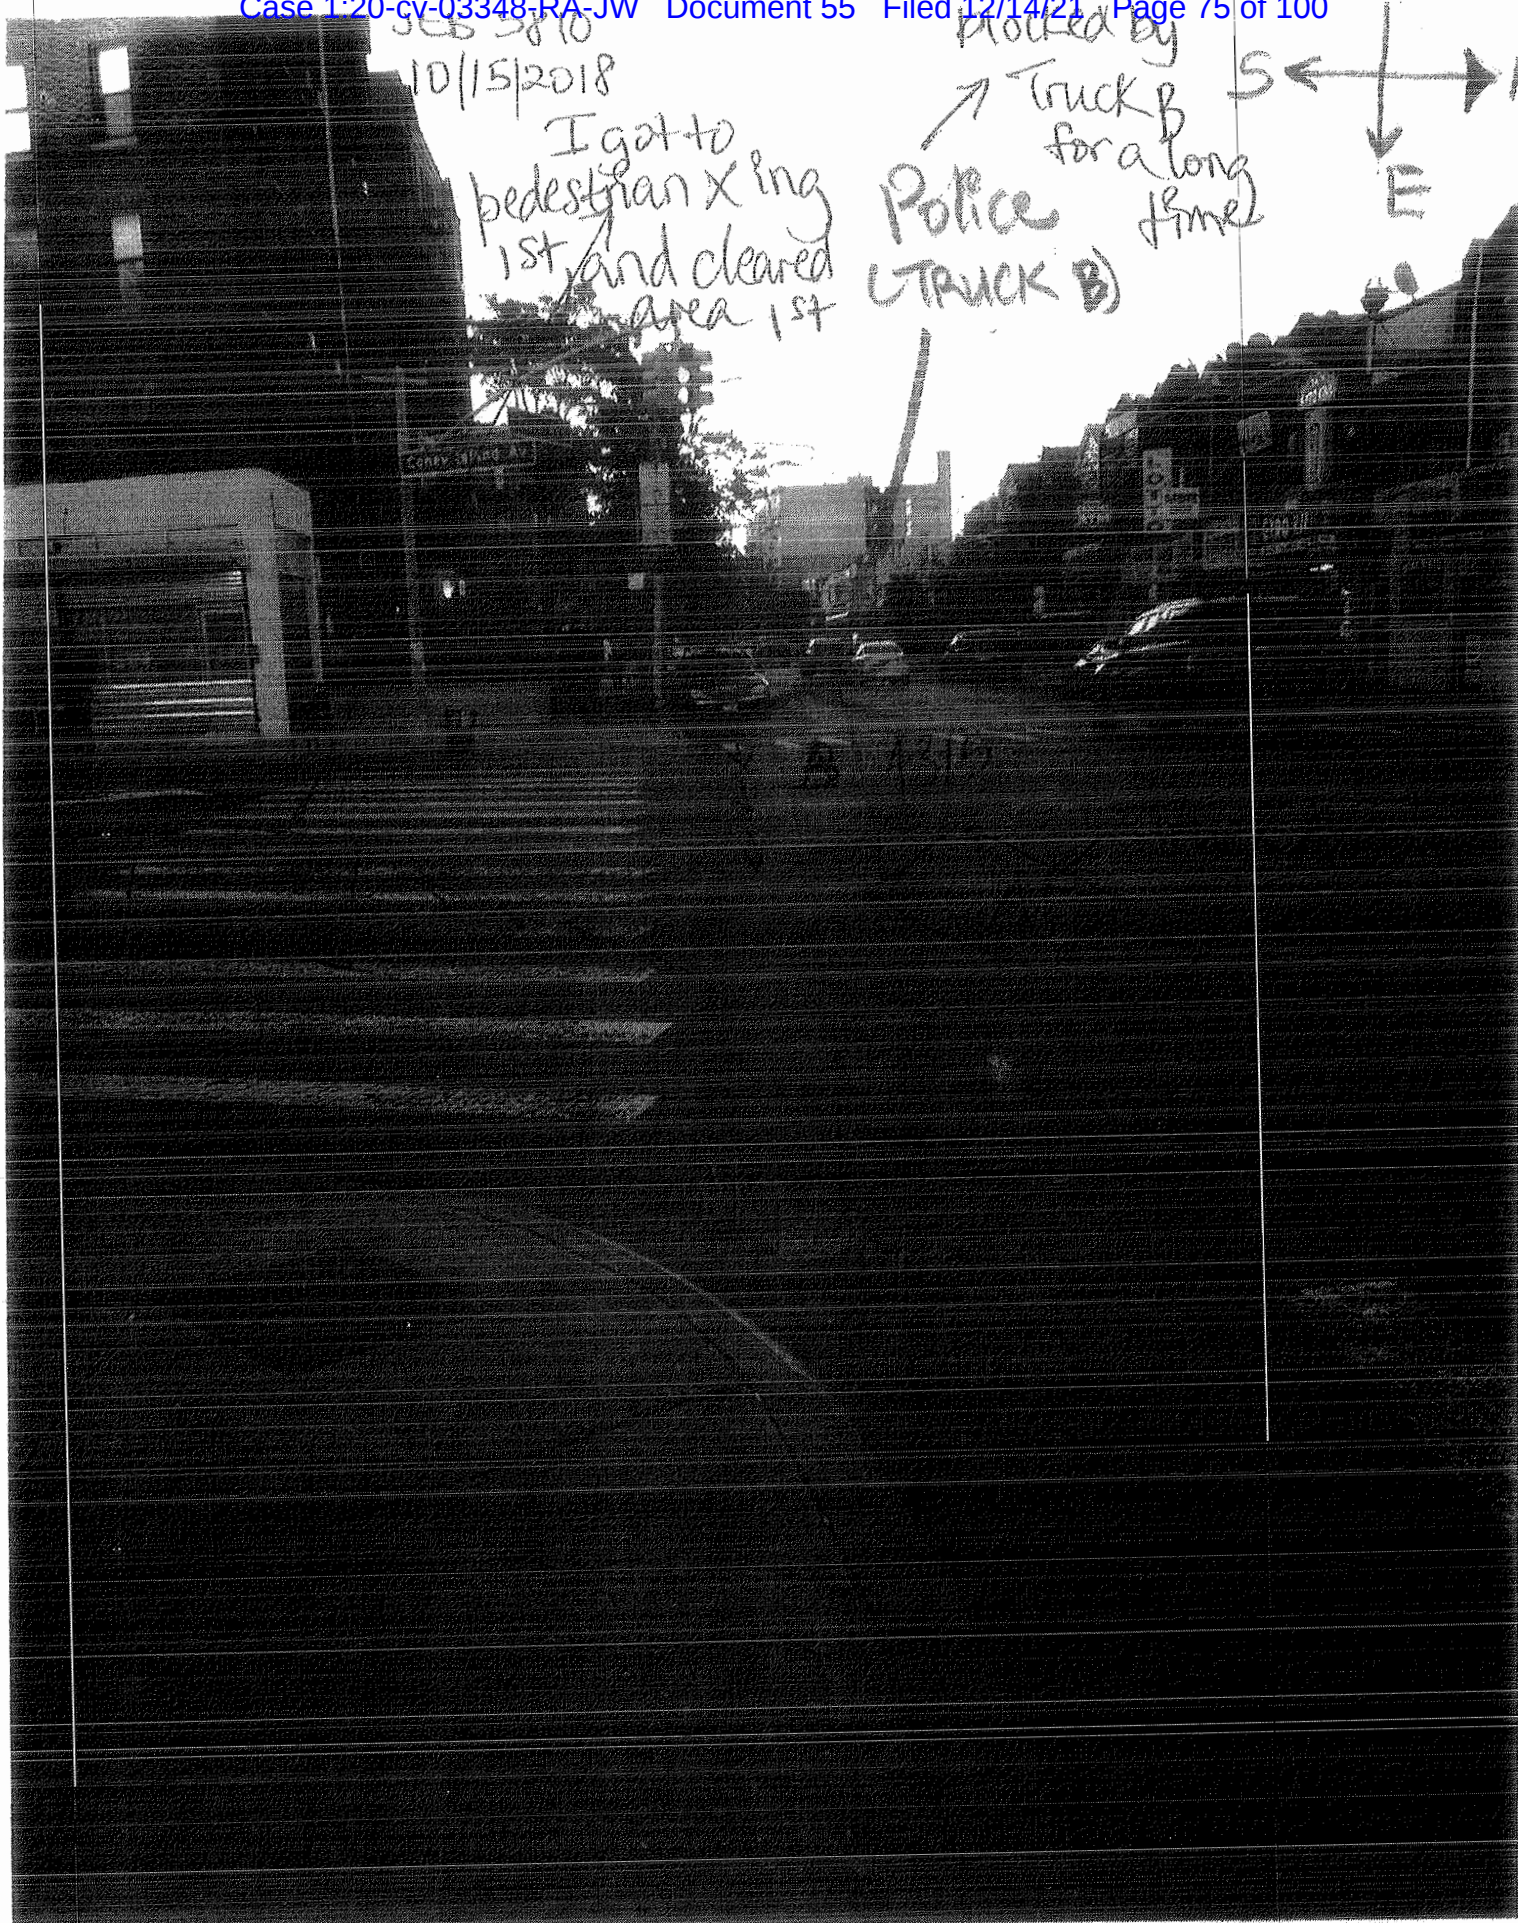 Case 1:20-cv-03348-RA-JW Document 55 Filed 12/14/21 Page 75 of 100
10/15/2018
I got to
pedestrian X ing
1st, and cleared
area 1st
blocked by
Truck B
for a long
time
Police
(TRUCK B)
S
E
Coney Island Av
LOTTO